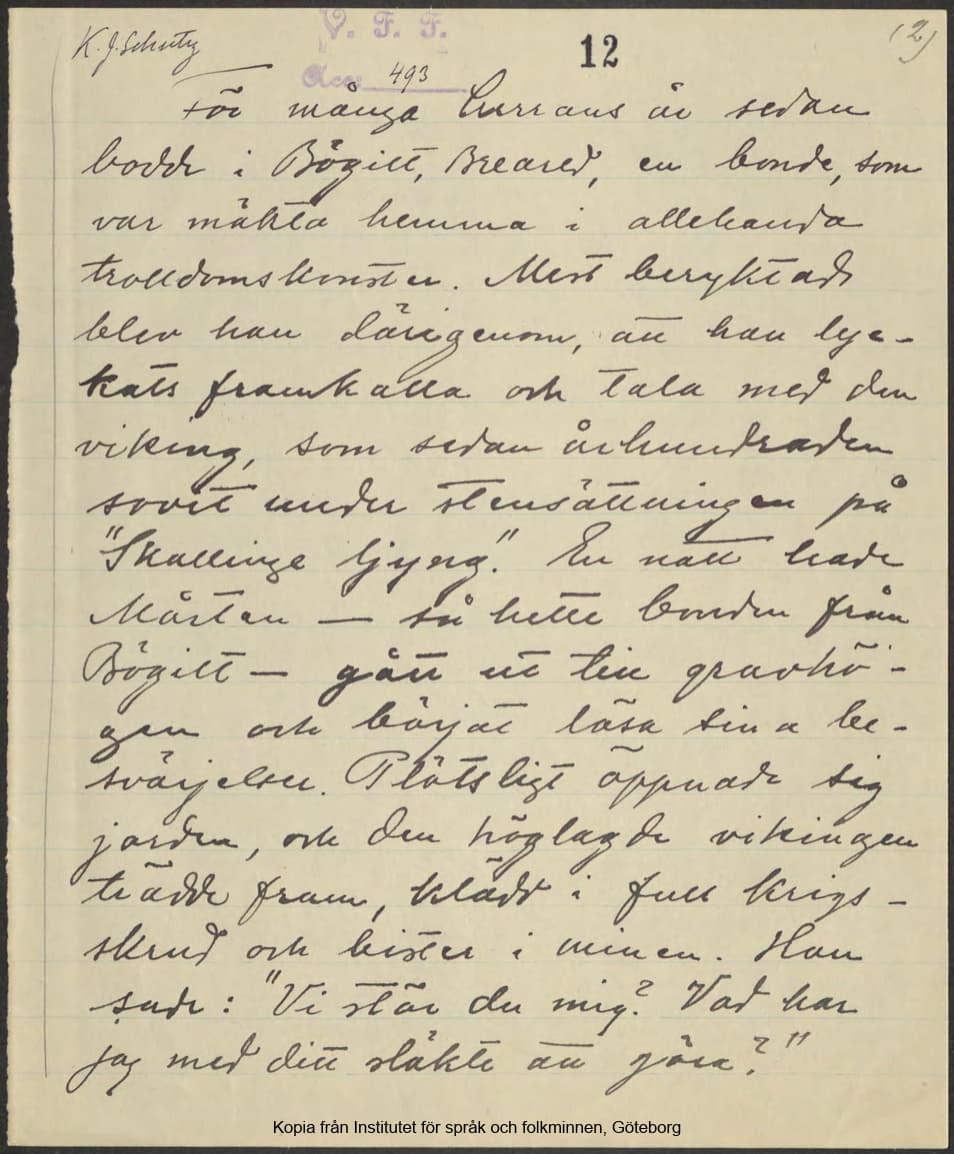 K. J. Schutz
V. F. F.
12
(2)
Acc. 493
För många herrans år sedan
bodde i Bögilt, Breared, en bonde, som
var mäkta hemma i allehanda
trolldomskonster. Mest beryktad
blev han därigenom, att han lyc-
kats framkalla och tala med den
viking, som sedan århundraden
sovit under stensättningen på
"Skallinge ljyng". En natt hade
Mårten — så hette bonden från
Bögilt — gått ut till gravhö-
gen och börjat läsa sina be-
svärjelser. Plötsligt öppnade sig
jorden, och den höglagde vikingen
trädde fram, klädd i full krigs-
skrud och bister i minen. Han
sade: "Vi stör du mig? Vad har
jag med ditt släkte att göra?"
Kopia från Institutet för språk och folkminnen, Göteborg